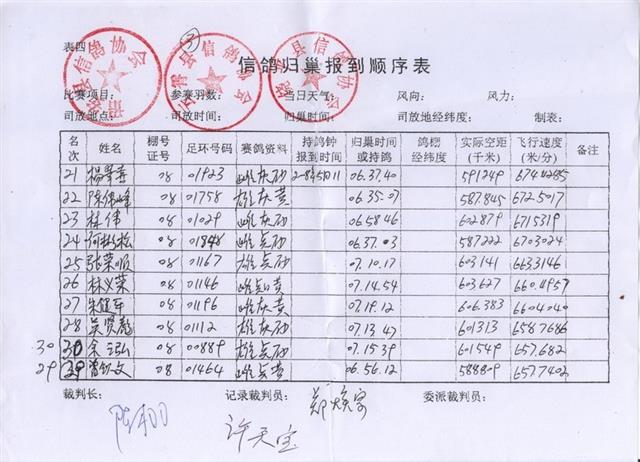 表四
③
信鸽归巢报到顺序表
比赛项目: 参赛羽数: 当日天气: 风向: 风力:
司放地点: 司放时间: 归巢时间: 司放地经纬度: 制表:
名次 姓名 棚号证号 足环号码 赛鸽资料 持鸽钟报到时间 归巢时间或持鸽 鸽棚经纬度 实际空距(千米) 飞行速度(米/分) 备注
21 08 01923 雌灰砂 06.37.40 591249
22 陈伟峰 08 01758 雄灰黄 06.35.07 587.845 672.5017
23 林伟 08 01029 雌灰砂 06.58.46 602879 671.5319
24 何彬松 08 01848 雌点砂 06.37.03 587222 670.3024
25 张荣顺 08 01167 雄点砂 07.10.17 603141 663.3146
26 林义荣 08 01146 雌点黄 07.14.54 603.627 660.4957
27 朱健军 08 01196 雌灰黄 07.19.12 606.383 660.4040
28 吴贤彪 08 01112 雄灰砂 07.13.47 601313 658.7686
30 30 08 00889 雄点砂 07.15.39 601549 657.682
29 29 08 01464 雌点黄 06.56.12 588809 657.7402
裁判长: 记录裁判员: 委派裁判员:
许天宝